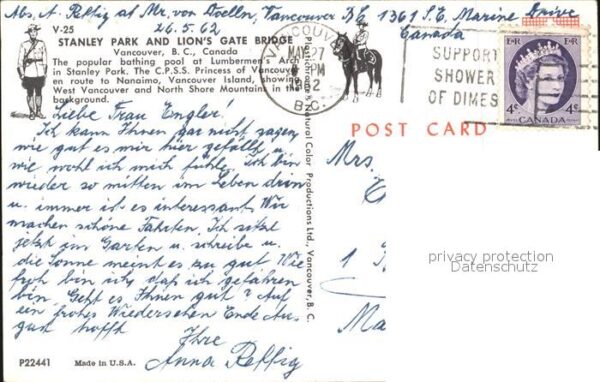 Abs. A. Reffig at Mr. von Doelln, Vancouver B.C. 1361 S.E. Marine Drive
26.5.62 Canada
V-25
STANLEY PARK AND LION'S GATE BRIDGE
Vancouver, B. C., Canada
The popular bathing pool at Lumbermen's Arch
in Stanley Park. The C.P.S.S. Princess of Vancouver
en route to Nanaimo, Vancouver Island, showing
West Vancouver and North Shore Mountains in the
background.
Liebe Frau Engler!
Ich kann Ihnen gar nicht sagen
wie gut es mir hier gefällt u.
wie wohl ich mich fühle. Ich bin
wieder so mitten im Leben drin
u. immer ist es interessant. Wir
machen schöne Fahrten. Ich sitze
jetzt im Garten u. schreibe u.
die Sonne meint es zu gut. Wie
froh bin ich, daß ich gefahren
bin. Geht es Ihnen gut? Auf
ein frohes Wiedersehen Ende Au-
gust hofft
Ihre
Anna Reffig
P22441 Made in U.S.A.
Natural Color Productions Ltd., Vancouver, B. C.
VANCOUVER
MAY 27
PM
B.C.
SUPPORT
SHOWER
OF DIMES
EIIR EIIR
4c 4c
CANADA
POST CARD
Mrs.
1
Ma
privacy protection
Datenschutz